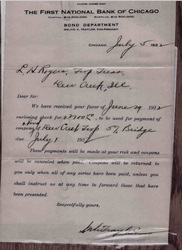 THE FIRST NATIONAL BANK OF CHICAGO
BOND DEPARTMENT
CHICAGO, July 5 1922
L H Rogers, Twp Treas,
Deer Creek, Ill.
Dear Sir:
We have received your favor of June 29 1922
enclosing check for $ to be used for payment of
coupons Deer Creek Twp 5% Bridge
due July 1 1922
These payments will be made at your risk and coupons
will be canceled when paid. Coupons will be returned to
you only when all of any series have been paid, unless you
shall instruct us at any time to forward those that have
been presented.
Respectfully yours,